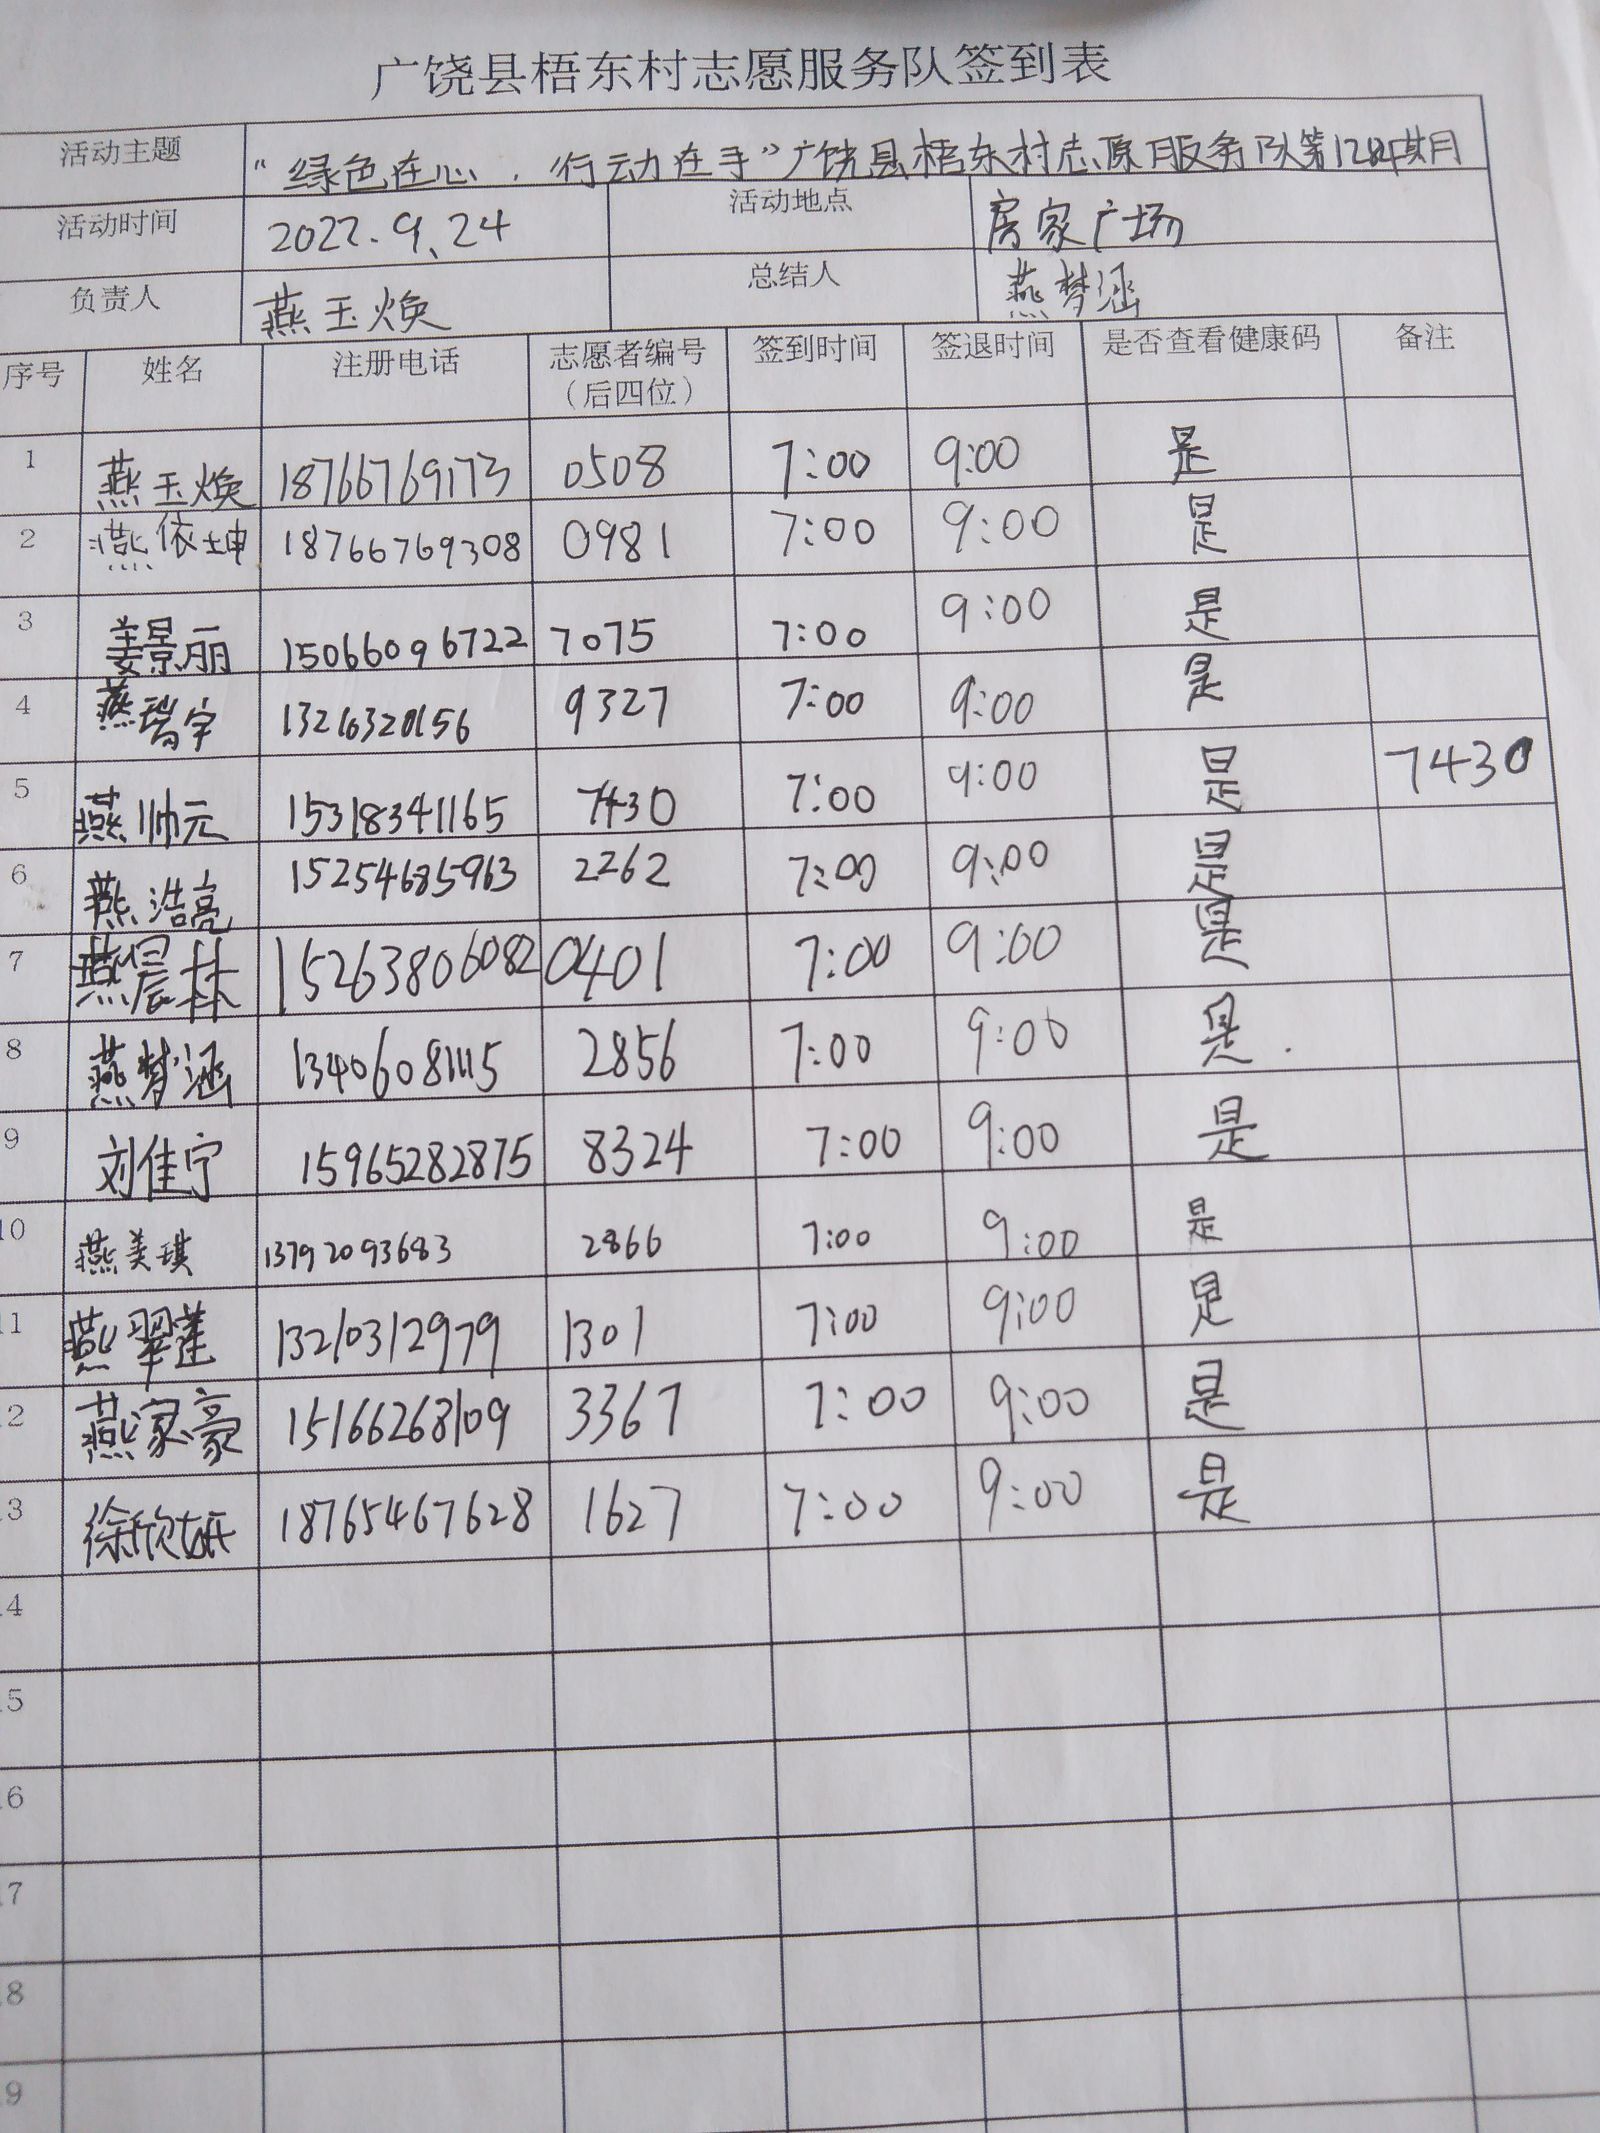 广饶县梧东村志愿服务队签到表
活动主题 “绿色在心，行动在手”广饶县梧东村志原服务队第128期
活动时间 2022.9.24 活动地点 房家广场
负责人 燕玉焕 总结人 燕梦涵
序号 姓名 注册电话 志愿者编号（后四位） 签到时间 签退时间 是否查看健康码 备注
1 燕玉焕 18766769173 0508 7:00 9:00 是
2 燕依坤 18766769308 0981 7:00 9:00 是
3 姜景丽 15066096722 7075 7:00 9:00 是
4 燕瑞宇 9327 7:00 9:00 是
5 燕帅元 15318341165 7430 7:00 9:00 是 7430
6 燕浩亮 15254685963 2262 7:00 9:00 是
7 燕晨林 15263806082 0401 7:00 9:00 是
8 燕梦涵 13406081115 2856 7:00 9:00 是
9 刘佳宁 15965282875 8324 7:00 9:00 是
10 燕美琪 13792093683 2866 7:00 9:00 是
11 燕翠莲 13210312979 1301 7:00 9:00 是
12 燕家豪 15166268109 3367 7:00 9:00 是
13 徐欣妍 18765467628 1627 7:00 9:00 是
.4
.5
.6
.7
.8
.9